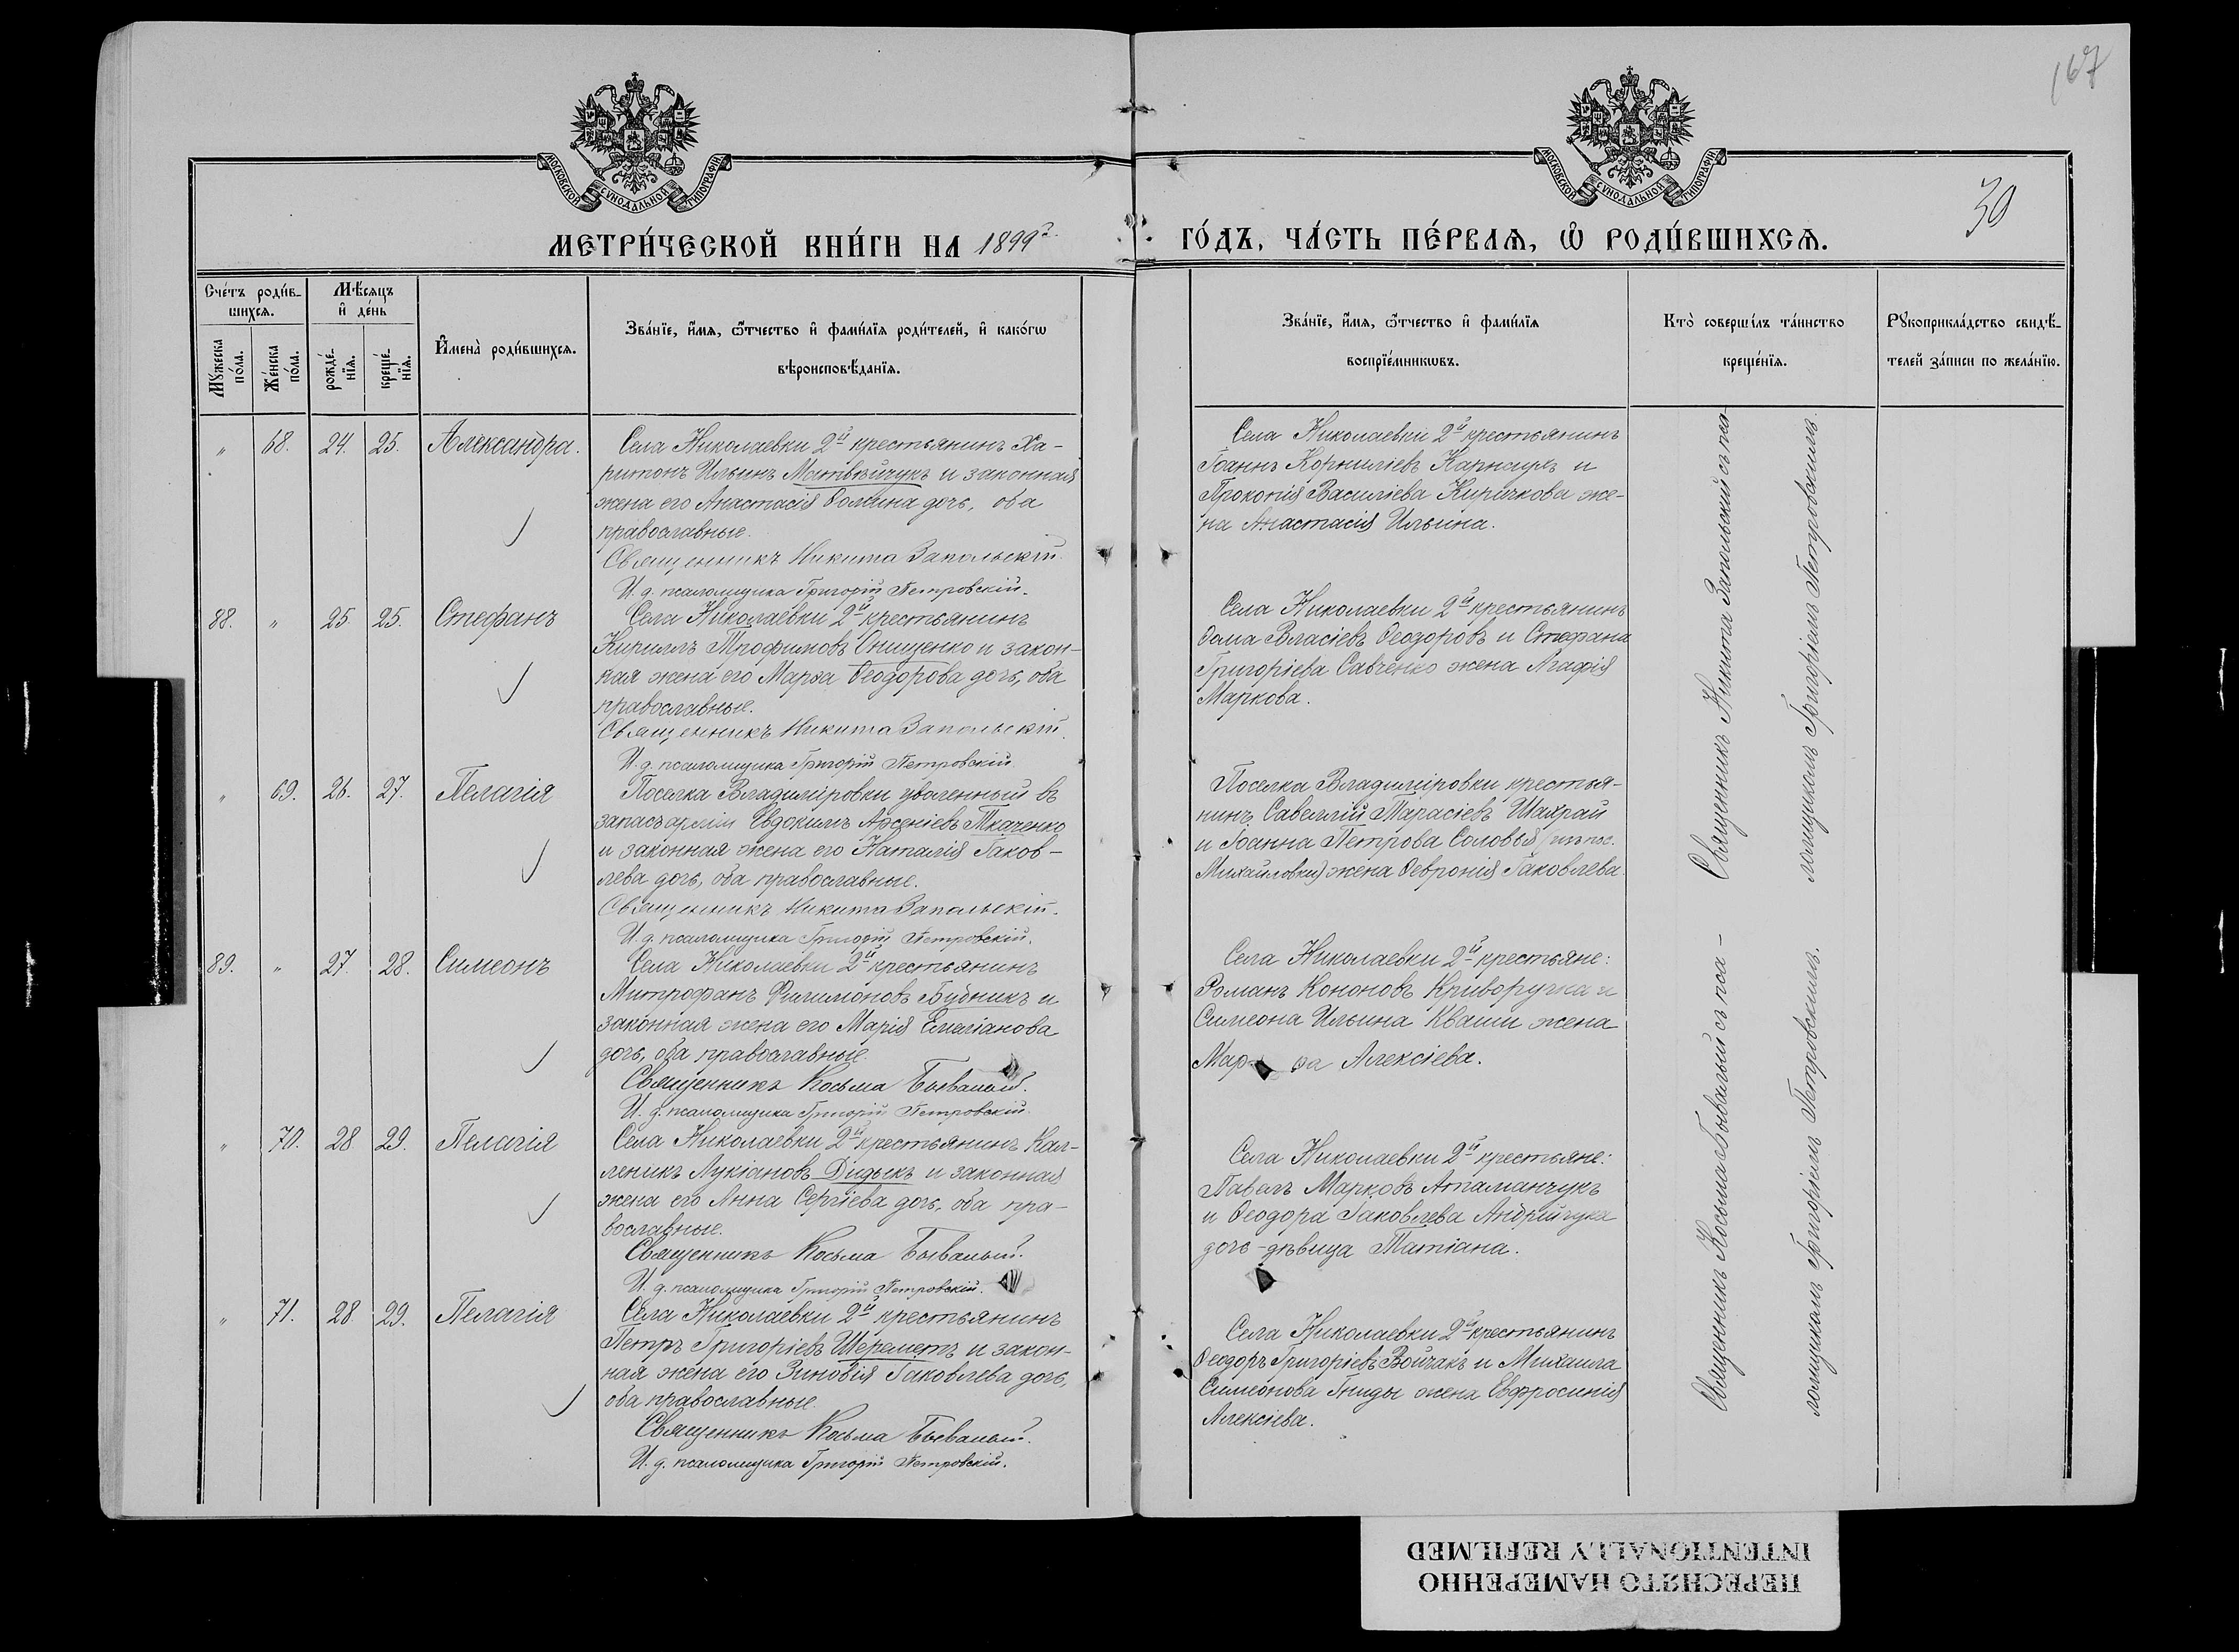 167
МОСКОВСКОЙ СУНОДАЛЬНОЙ ТИПОГРАФІИ
МОСКОВСКОЙ СУНОДАЛЬНОЙ ТИПОГРАФІИ
30
МЕТРИ́ЧЕСКОЙ КНИ́ГИ НА 1899 г.
ГО́ДЪ, ЧА́СТЬ ПЕ́РВАѦ, Ѡ РОДИ́ВШИХСѦ.
Сче́тъ роди́в-
шихсѧ.
Мꙋжеска по́ла.
Же́нска по́ла.
Мѣ́сѧцъ
и де́нь
рожде́-нїѧ.
креще́-нїѧ.
Имена̀ роди́вшихсѧ.
Зва́нїе, и́мѧ, ѻ́тчество и фами́лїѧ роди́телей, и како́гѡ
вѣроисповѣ́данїѧ.
Зва́нїе, и́мѧ, ѻ́тчество и фами́лїѧ
воспрїе́мникѡвъ.
Кто̀ соверши́лъ та́инство
креще́нїѧ.
Рꙋкоприкла́дство свидѣ́-
телей за́писи по жела́нїю.
" 68. 24. 25. Александра.
Села Николаевки 2й крестьянинъ Ха-
ритонъ Ильинъ Матвѣйчукъ и законная
жена его Анастасія Ѳомина дочь, оба
православные.
Священникъ Никита Запольскій.
И. д. псаломщика Григорій Петровскій.
Села Николаевки 2й крестьянинъ
Іоаннъ Корниліевъ Карнаухъ и
Прокопія Василіева Киричкова же-
на Анастасія Ильина.
88. " 25. 25. Стефанъ
Села Николаевки 2й крестьянинъ
Кириллъ Трофимовъ Онищенко и закон-
ная жена его Марѳа Ѳеодорова дочь, оба
православные.
Священникъ Никита Запольскій.
И. д. псаломщика Григорій Петровскій.
Села Николаевки 2й крестьянинъ
Ѳома Власіевъ Ѳеодоровъ и Стефана
Григоріева Савченко жена Агафія
Маркова.
" 69. 26. 27. Пелагія
Поселка Владиміровки уволенный въ
запасъ арміи Евдокимъ Арсеніевъ Ткаченко
и законная жена его Наталія Іаков-
лева дочь, оба православные.
Священникъ Никита Запольскій.
И. д. псаломщика Григорій Петровскій.
Поселка Владиміровки крестья-
нинъ Савеллій Тарасіевъ Шахрай
и Іоанна Петрова Соловья (изъ пос.
Михайловки) жена Ѳевронія Іаковлева.
Священникъ Никита Запольскій съ пса-
ломщикомъ Григоріемъ Петровскимъ.
89. " 27. 28. Симеонъ
Села Николаевки 2й крестьянинъ
Митрофанъ Филимоновъ Будникъ и
законная жена его Марія Емиліанова
дочь, оба православные.
Священникъ Косьма Бывалый.
И. д. псаломщика Григорій Петровскій.
Села Николаевки 2й крестьяне:
Романъ Кононовъ Криворучка и
Симеона Ильина Кваши жена
Марѳа Алексіева.
" 70. 28. 29. Пелагія
Села Николаевки 2й крестьянинъ Кал-
леникъ Лукіановъ Дидыкъ и законная
жена его Анна Сергіева дочь, оба пра-
вославные.
Священникъ Косьма Бывалый.
И. д. псаломщика Григорій Петровскій.
Села Николаевки 2й крестьяне:
Павелъ Марковъ Атаманчукъ
и Ѳеодора Іаковлева Андрійчука
дочь-дѣвица Татіана.
" 71. 28. 29. Пелагія
Села Николаевки 2й крестьянинъ
Петръ Григоріевъ Шереметъ и закон-
ная жена его Зиновія Іаковлева дочь,
оба православные.
Священникъ Косьма Бывалый.
И. д. псаломщика Григорій Петровскій.
Села Николаевки 2й крестьянинъ
Ѳеодоръ Григоріевъ Войчакъ и Михаила
Симеонова Гниды жена Евфросинія
Алексіева.
Священникъ Косьма Бывалый съ пса-
ломщикомъ Григоріемъ Петровскимъ.
ПЕРЕСНЯТО НАМЕРЕННО
INTENTIONALLY REFILMED